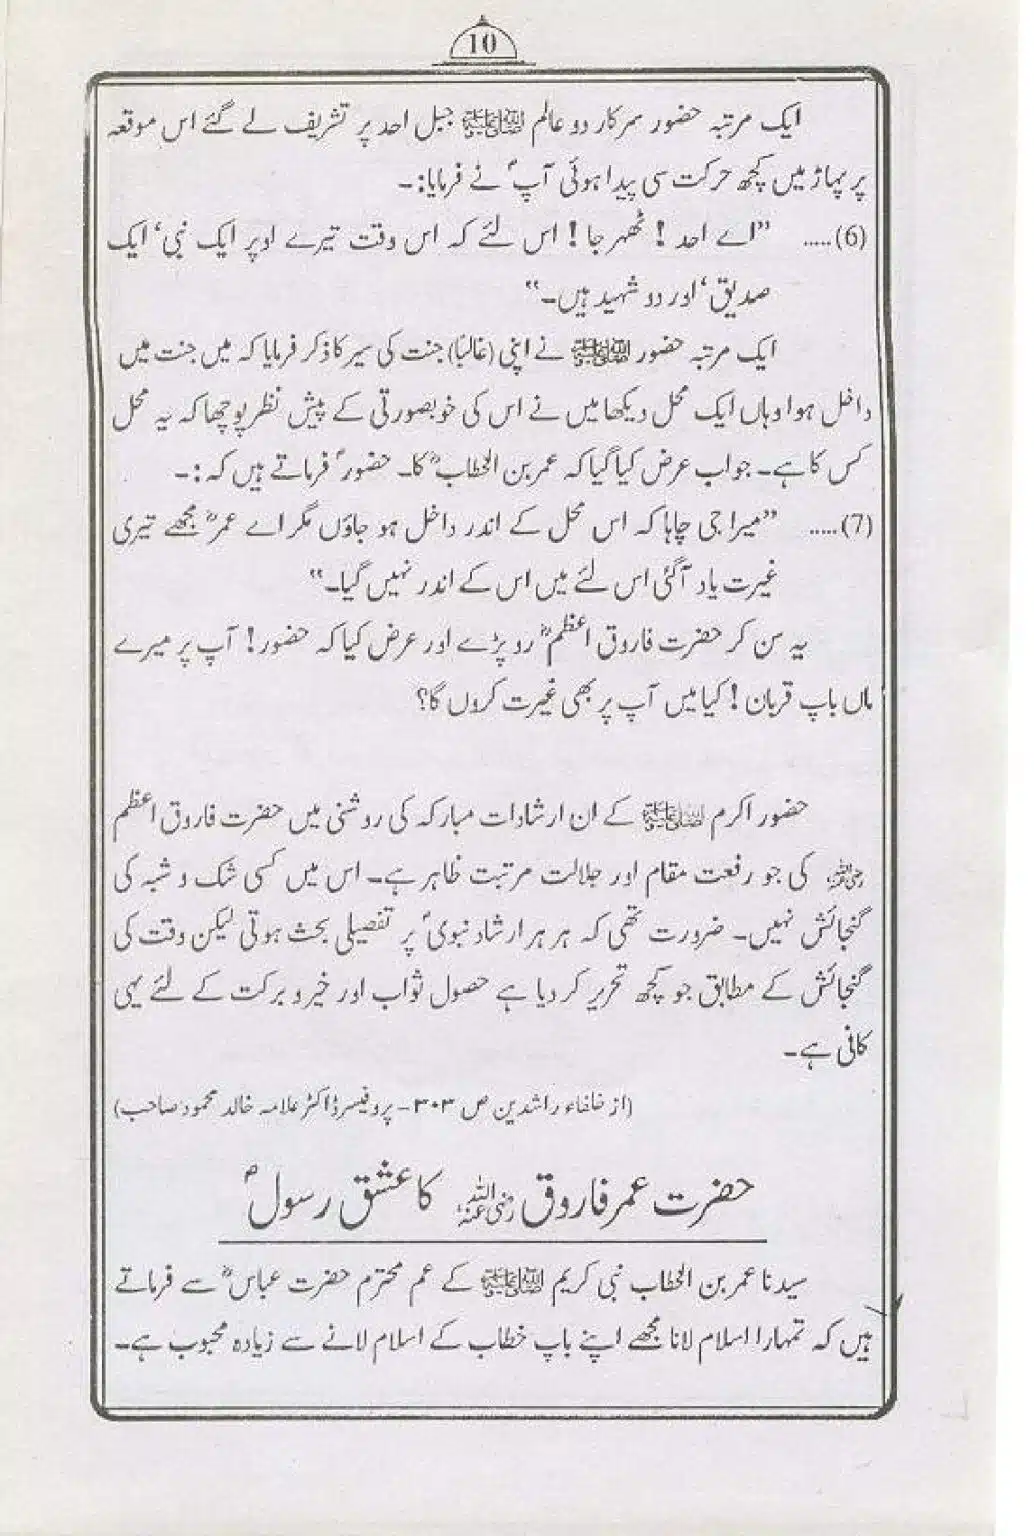 10
ایک مرتبہ حضور سرکار دو عالم ﷺ جبل احد پر تشریف لے گئے اس موقعہ
پر پہاڑ میں کچھ حرکت سی پیدا ہوئی آپؐ نے فرمایا:۔
(6)..... ”اے احد! ٹھہر جا! اس لئے کہ اس وقت تیرے اوپر ایک نبی‘ ایک
صدیق‘ اور دو شہید ہیں۔“
ایک مرتبہ حضور ﷺ نے اپنی (غالبًا) جنت کی سیر کا ذکر فرمایا کہ میں جنت میں
داخل ہوا وہاں ایک محل دیکھا میں نے اس کی خوبصورتی کے پیش نظر پوچھا کہ یہ محل
کس کا ہے۔ جواب عرض کیا گیا کہ عمر بن الخطابؓ کا۔ حضورؐ فرماتے ہیں کہ:۔
(7)..... ”میرا جی چاہا کہ اس محل کے اندر داخل ہو جاؤں مگر اے عمرؓ مجھے تیری
غیرت یاد آگئی اس لئے میں اس کے اندر نہیں گیا۔“
یہ سن کر حضرت فاروق اعظمؓ رو پڑے اور عرض کیا کہ حضور! آپ پر میرے
ماں باپ قربان! کیا میں آپ پر بھی غیرت کروں گا؟
حضور اکرم ﷺ کے ان ارشادات مبارکہ کی روشنی میں حضرت فاروق اعظم
رضی اللہ عنہ کی جو رفعت مقام اور جلالت مرتبت ظاہر ہے۔ اس میں کسی شک و شبہ کی
گنجائش نہیں۔ ضرورت تھی کہ ہر ہر ارشاد نبویؐ پر تفصیلی بحث ہوتی لیکن وقت کی
گنجائش کے مطابق جو کچھ تحریر کر دیا ہے حصول ثواب اور خیر و برکت کے لئے یہی
کافی ہے۔
(از خلفاء راشدین ص ۳۰۳۔ پروفیسر ڈاکٹر علامہ خالد محمود صاحب)
حضرت عمر فاروق رضی اللہ عنہ کا عشق رسولؐ
سیدنا عمر بن الخطاب نبی کریم ﷺ کے عم محترم حضرت عباسؓ سے فرماتے
ہیں کہ تمہارا اسلام لانا مجھے اپنے باپ خطاب کے اسلام لانے سے زیادہ محبوب ہے۔